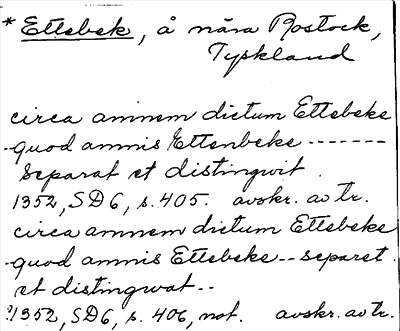 * Ettebek, å nära Rostock,
Tyskland
circa amnem dictum Ettebeke
- quod amnis Ettenbeke -------
separat et distingwit.
1352, SD6, s. 405. avskr. av tr.
circa amnem dictum Ettebeke
- quod amnis Ettebeke -- separet
et distingwat --
?1352, SD6, s. 406, not. avskr. av tr.